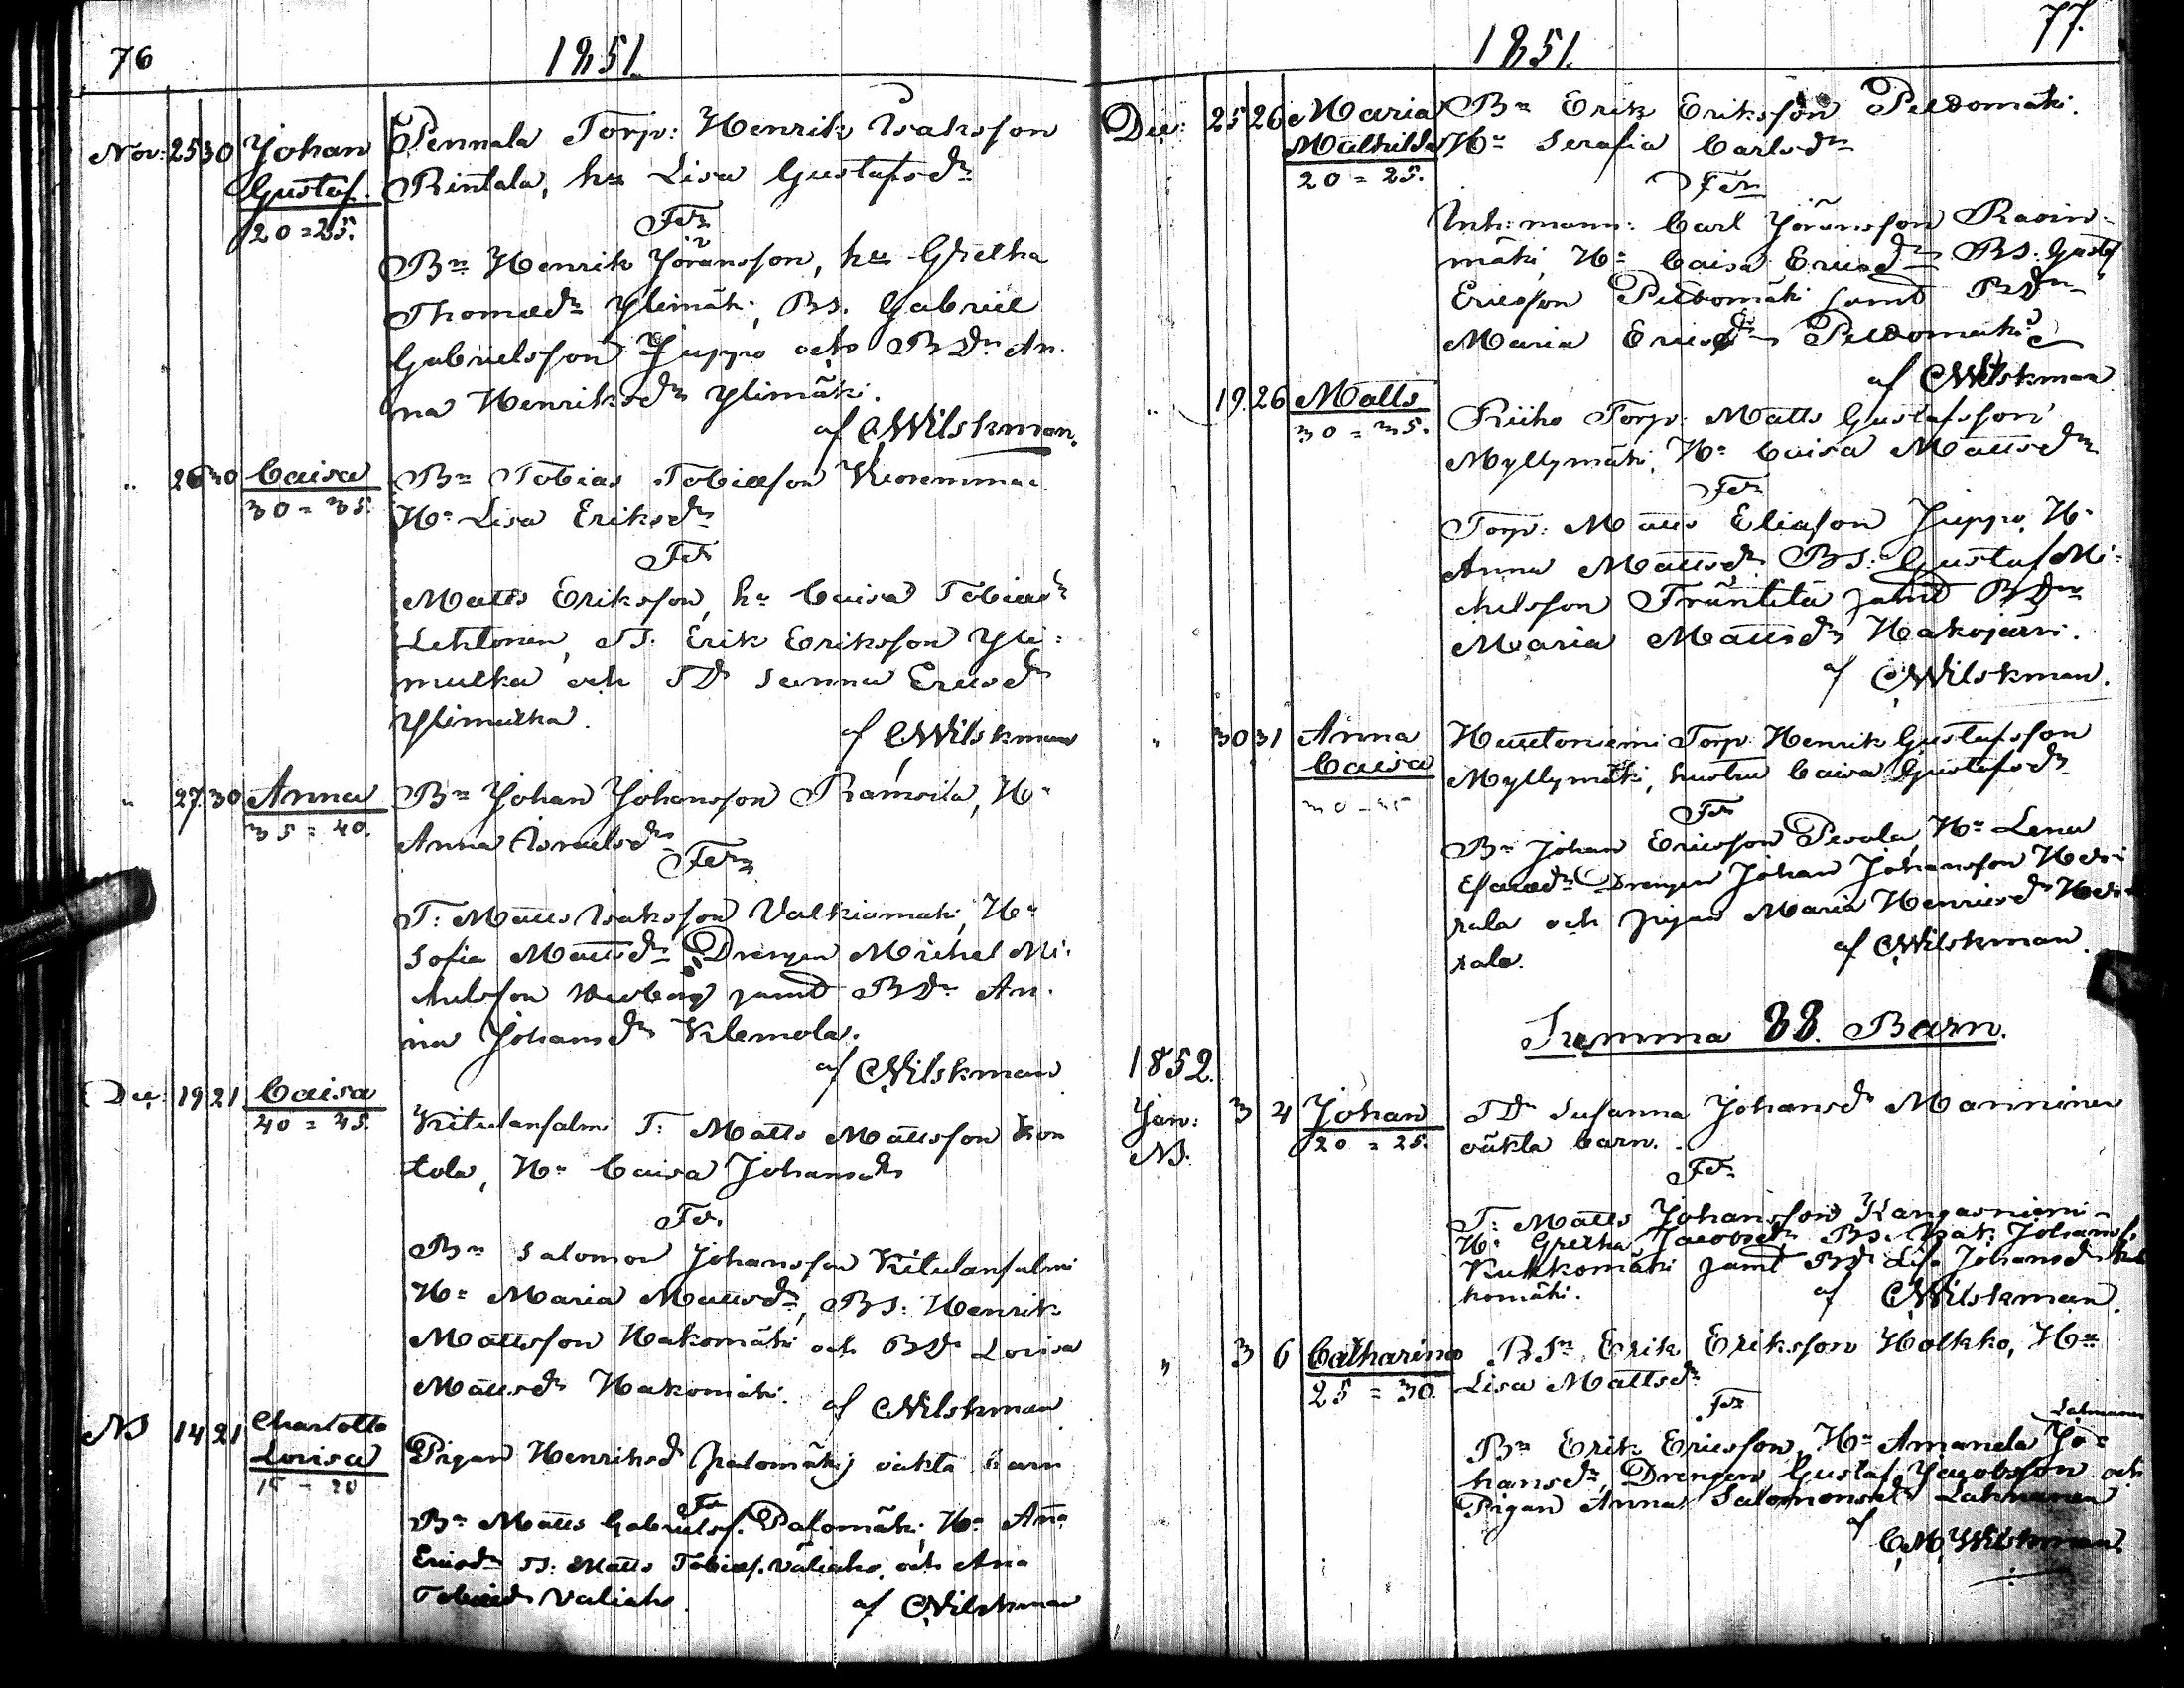 76
1851.
Nov: 25 30 Johan Pennala Torp: Henrik Isaksson
Gustaf. Rintala, hu Lisa Gustafsdr
20=25. Fdr
Bn Henrik Jöransson, hu Gretha
Thomasdr Ylimäki, BS. Gabriel
Gabrielsson Juppo och BDr An-
na Henriksdr Ylimäki.
af CWilskman.
" 26 30 Caisa Bn Tobias Tobiasson
30=35. Hu Lisa Eriksdr
Fdr
Matts Eriksson, hu Caisa Tobiasdr
Lehtonen, TS. Erik Eriksson Yli=
mulka och TDr Sanna Ericsdr
Ylimulka.
af CWilskman
" 27 30 Anna Bn Johan Johansson Hu
35=40. Anna Israelsdr
Fdr
T: Matts Isaksson Valkiamäki, Hu
Sofia Mattsdr Drengen Michel Mi-
chelsson samt BDr An-
na Johansdr Klemola.
af CWilskman
Dec: 19 21 Caisa
40=45. Kitulansalmi T: Matts Mattsson Kon
tola, Hu Caisa Johansdr
Fdr
Bn Salomon Johansson Kitulansalmi
Hu Maria Mattsdr, BS: Henrik
Mattsson Hakomäki och BDr Lovisa
Mattsdr Hakomäki.
af CWilskman
NB 14 21 Charlotta
Lovisa Pigan Henriksdr Palomäki oäkta barn
15=20
Fdr
Bn Matts Gabrielsf. Palomäki, Hu Ana
Ericsdr TS: Matts Tobiasf. Väliaho, och Ana
Tobiasdr Valiaho.
af CWilskman
77.
1851.
Dec: 25 26 Maria Bn Erik Eriksson Peldomäki.
Mathilda Hu Serafia Carlsdr
20=25.
Fdr
Inh: mann: Carl Jöransson Raoin-
mäki, Hu Caisa Ericsdr BS: Gustf
Ericsson Peldomäki samt BDr
Maria Ericsdr Peldomäki
af CWilskman
" 19. 26 Matts
30=35. Riiho Torp: Matts Gustafsson
Myllymäki, Hu Caisa Mattsdr
Fdr
Torp: Matts Eliasson Juppo, Hu
Anna Mattsdr BS: Gustaf Mi-
chelsson Träntitä samt BDr
Maria Mattsdr Hakojärvi.
af CWilskman.
" 30 31 Anna Hautoniemi Torp Henrik Gustafsson
Caisa Myllymäki, hustru Caisa Gustafsdr
Fdr
Bn Johan Ericsson Pesola, Hu Lena
Esaiasdr Drengen Johan Johansson
och pigan Maria Henricsdr
af CWilskman.
Summa 88. Barn.
1852.
Jan: 3 4 Johan TDr Susanna Johansdr Manninen
NB. 20=25. oäkta barn.
Fdr
T: Matts Johansson Kangasniemi
Hu Gretha Jacobsdr BS. Isak Johansf.
Kukkomäki samt BDr Lisa Johansdr Kuk
komäki.
af CWilskman.
" 3 6 Catharina BSn Erik Eriksson Holkko, Hu
25=30. Lisa Mattsdr
Fdr
Lahnanen
Bn Erik Ericsson, Hu Amanda Jo=
hansdr, Drengen Gustaf Jacobsson och
Pigan Anna Salomonsdr Lahnanen
af
C.M. Wilskman.